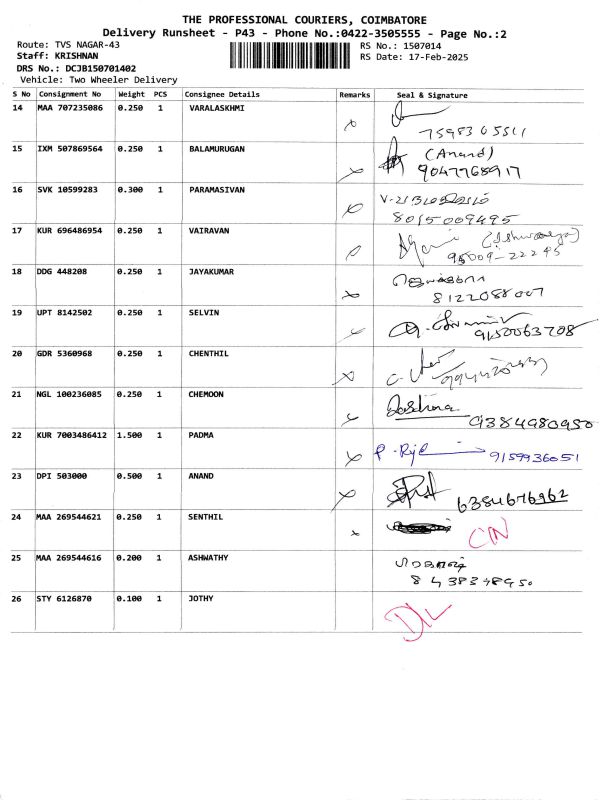 THE PROFESSIONAL COURIERS, COIMBATORE
Delivery Runsheet - P43 - Phone No.:0422-3505555 - Page No.:2
Route: TVS NAGAR-43
Staff: KRISHNAN
DRS No.: DCJB150701402
Vehicle: Two Wheeler Delivery
RS No.: 1507014
RS Date: 17-Feb-2025
S No Consignment No Weight PCS Consignee Details Remarks Seal & Signature
14 MAA 707235086 0.250 1 VARALASKHMI
7598305511
15 IXM 507869564 0.250 1 BALAMURUGAN (Anand)
9047768917
16 SVK 10599283 0.300 1 PARAMASIVAN
8015009495
17 KUR 696486954 0.250 1 VAIRAVAN
95009-22295
18 DDG 448208 0.250 1 JAYAKUMAR
8122088007
19 UPT 8142502 0.250 1 SELVIN
9150063708
20 GDR 5360968 0.250 1 CHENTHIL
21 NGL 100236085 0.250 1 CHEMOON
9384980950
22 KUR 7003486412 1.500 1 PADMA
9159936051
23 DPI 503000 0.500 1 ANAND
6384676962
24 MAA 269544621 0.250 1 SENTHIL CIN
25 MAA 269544616 0.200 1 ASHWATHY
26 STY 6126870 0.100 1 JOTHY DL